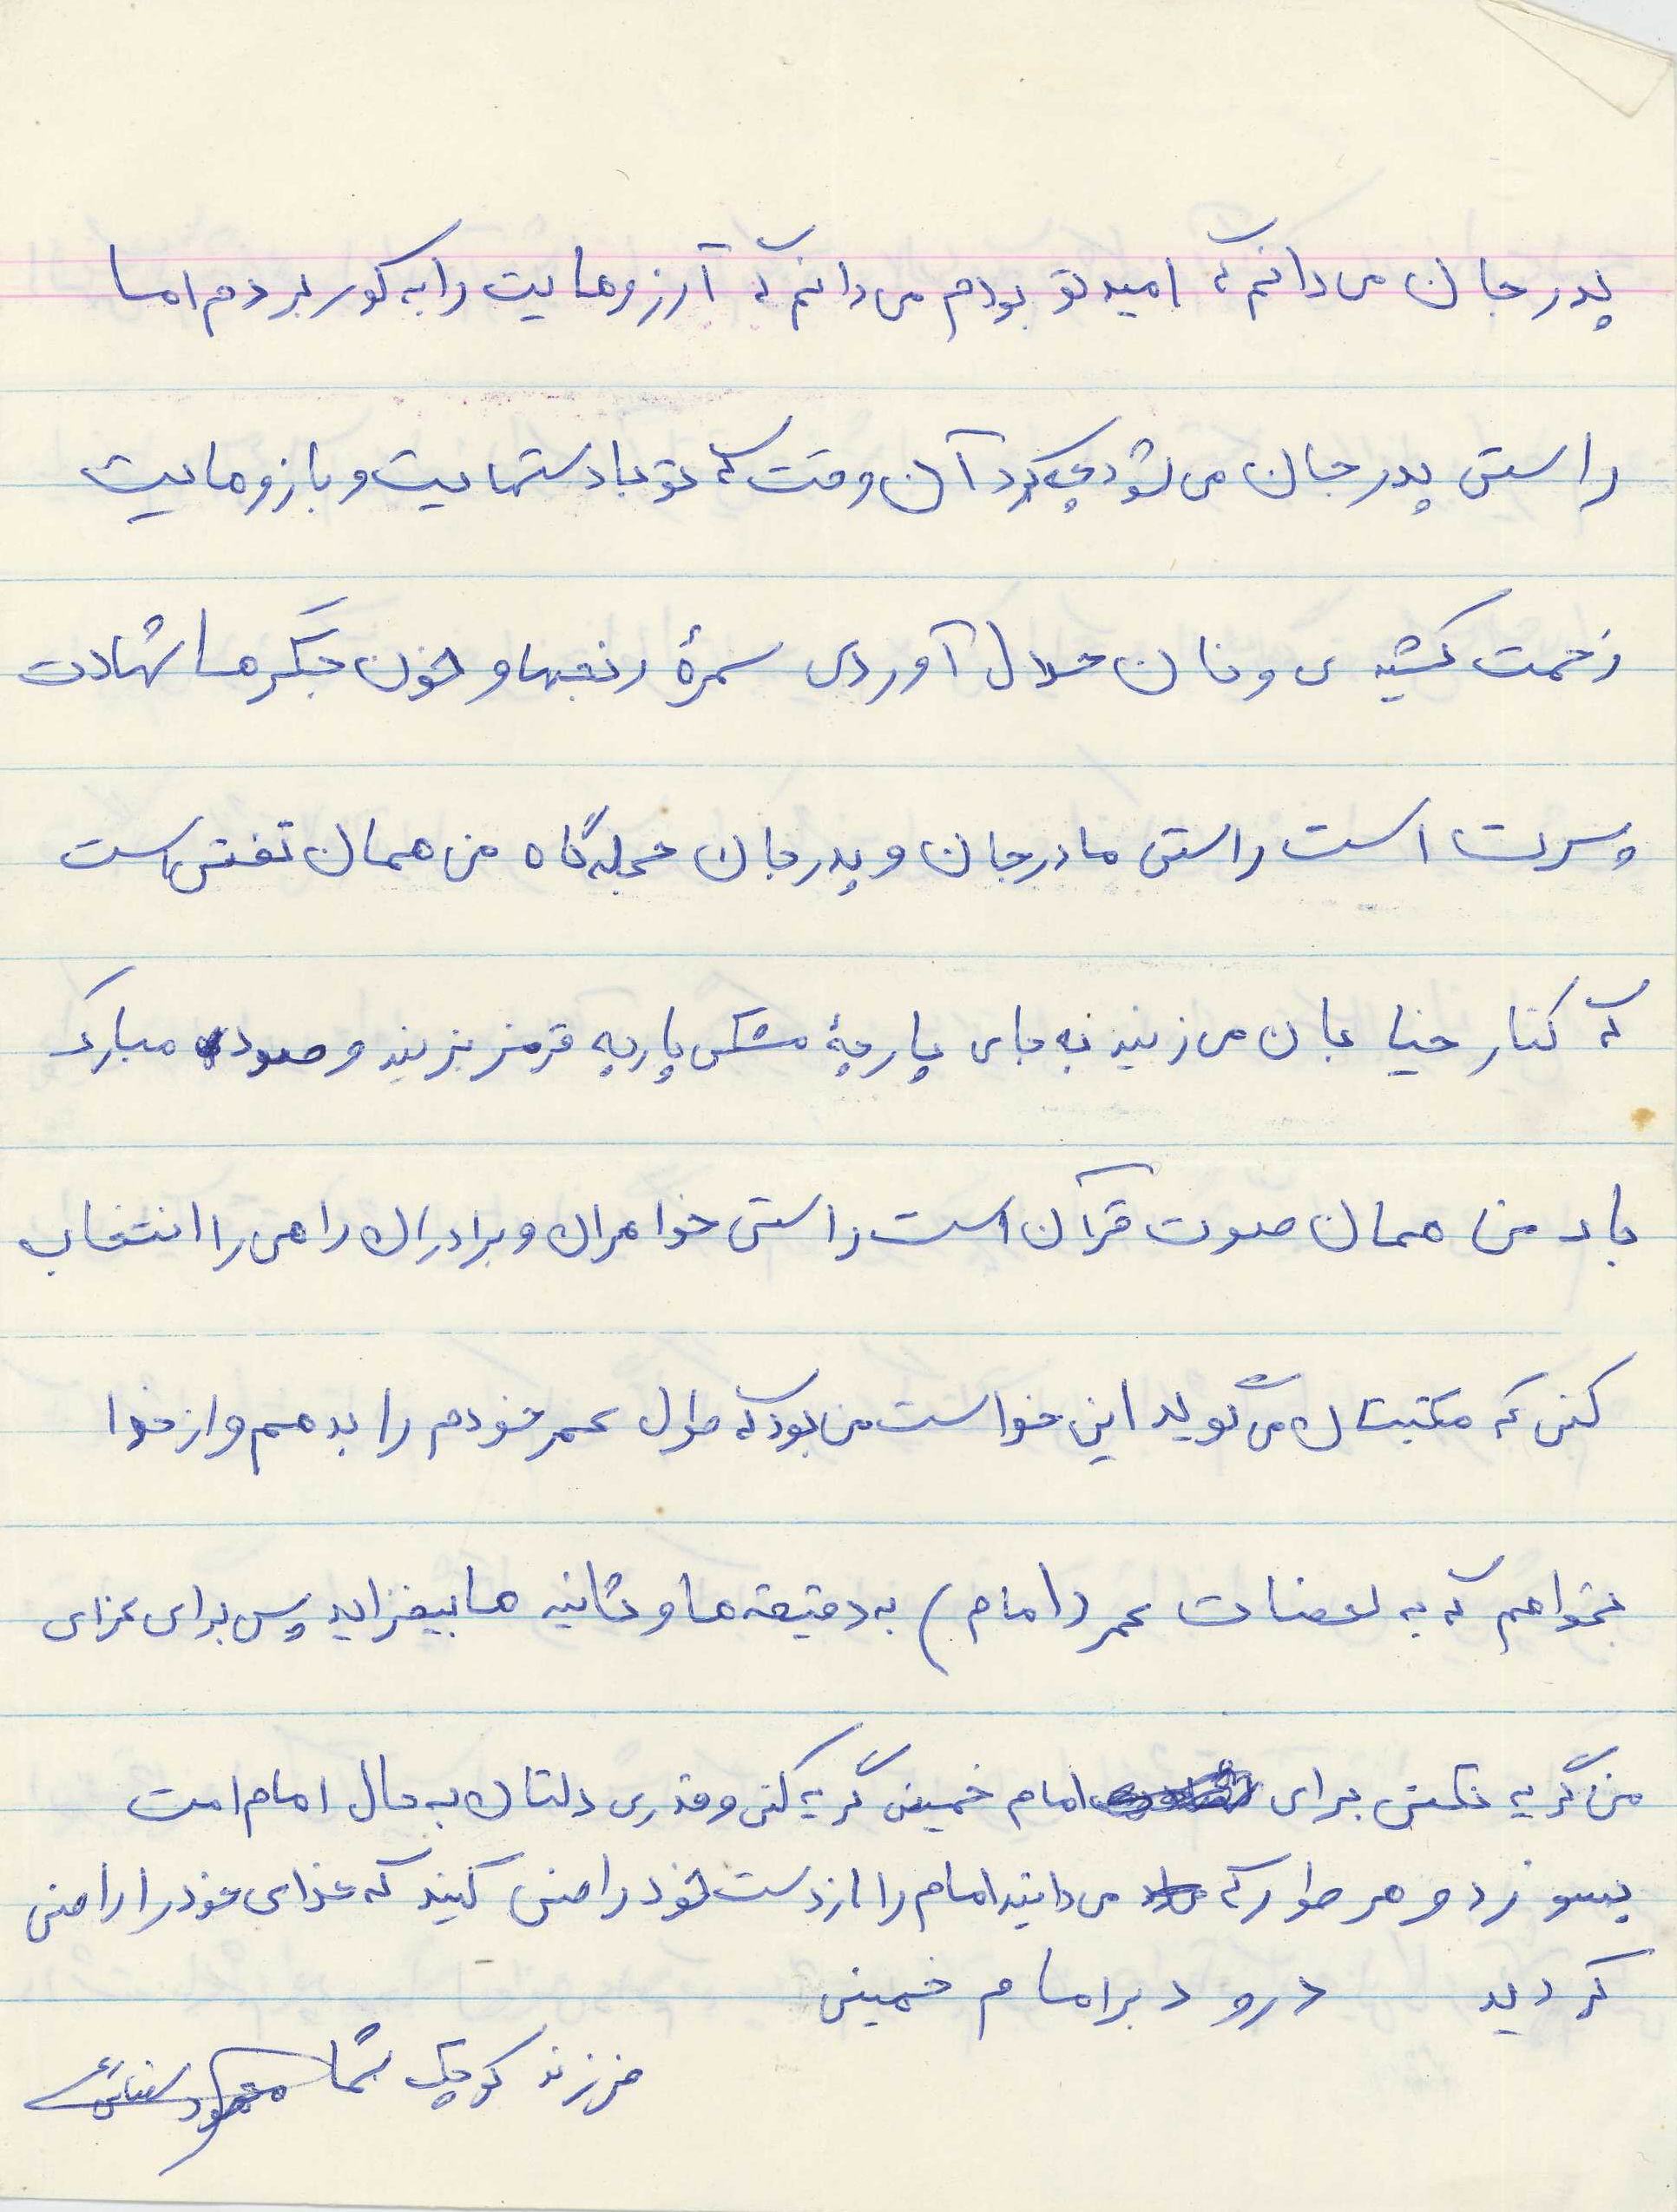 پدر جان می دانم که امید تو بودم می دانم که آرزوهایت را به گور بردم اما
راستی پدر جان می شود چه کرد آن وقت که تو با دستهایت و بازوهایت
زحمت کشیدی و نان حلال آوردی سمرهٔ رنجها و خون جگرها شهادت
پسرت است راستی مادر جان و پدر جان حجله گاه من همان نقش است
که کنار خیابان می زنید به جای پارچهٔ مشکی پارچه قرمز بزنید و صدای مبارک
باد من همان صوت قرآن است راستی خواهران و برادران راهی را انتخاب
کنی که مکتبتان می گوید این خواست من بود که طول عمر خودم را بدهم و از خدا
بخواهم که به لحضات عمر (امام) به دقیقه ها و ثانیه ها بیفزاید پس برای عزای
من گریه نکنی برای امام خمینی گریه کنی و قدری دلتان به حال امام امت
بسوزد و هر طور که می دانید امام را از دست خود راضی کنید که خدای خود را راضی
کردید درود بر امام خمینی
فرزند کوچک شما محمود